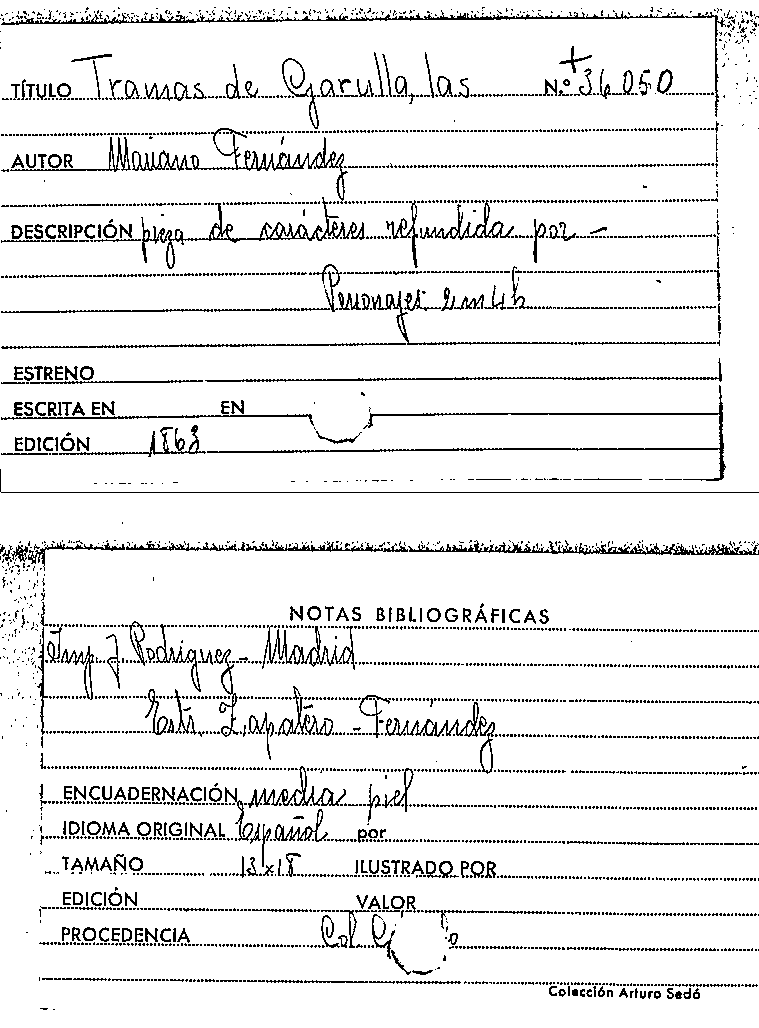 TÍTULO Tramas de Garulla, las N.º + 36050
AUTOR Mariano Fernández
DESCRIPCIÓN pieza de carácteres refundida por -
Personajes: 2 m 4 h
ESTRENO
ESCRITA EN EN
EDICIÓN 1863
NOTAS BIBLIOGRÁFICAS
Imp. J Rodriguez - Madrid
Estr. Zapatero - Fernández
ENCUADERNACIÓN media piel
IDIOMA ORIGINAL Español por
TAMAÑO 13x18 ILUSTRADO POR
EDICIÓN VALOR
PROCEDENCIA Col
Colección Arturo Sedó